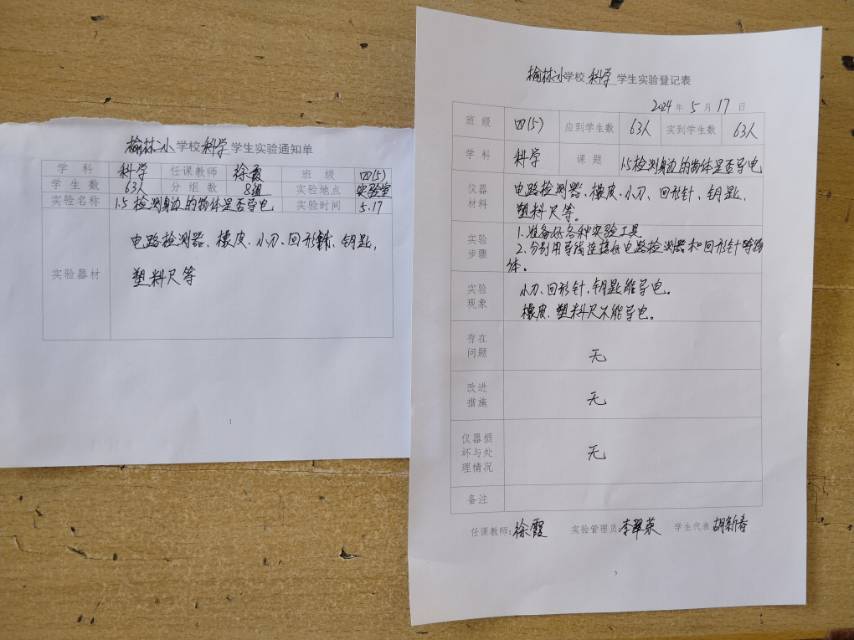 榆林小学校科学学生实验通知单
学科 科学 任课教师 徐霞 班级 四(5)
学生数 63人 分组数 8组 实验地点 实验室
实验名称 1.5检测身边的物体是否导电 实验时间 5.17
实验器材 电路检测器、橡皮、小刀、回形针、钥匙、
塑料尺等
1
榆林小学校科学学生实验登记表
2024年5月17日
班级 四(5) 应到学生数 63人 实到学生数 63人
学科 科学 课题 1.5检测身边的物体是否导电
仪器材料 电路检测器、橡皮、小刀、回形针、钥匙、
塑料尺等。
实验步骤 1.准备好各种实验工具
2.分别用导线连接电路检测器和回形针等物
体。
实验现象 小刀、回形针、钥匙能导电。
橡皮、塑料尺不能导电。
存在问题 无
改进措施 无
仪器损坏与处理情况 无
备注
任课教师:徐霞 实验管理员:李翠英 学生代表 胡新春